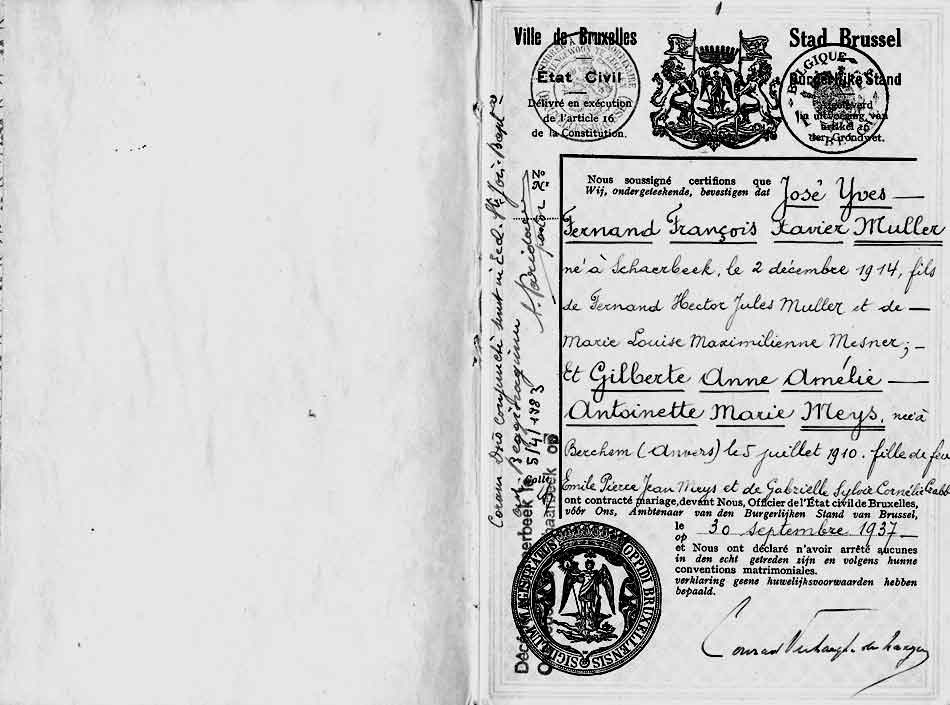 Ville de Bruxelles
Etat Civil
Délivré en exécution
de l'article 16
de la Constitution.
Stad Brussel
Burgerlijke Stand
Afgeleverd
in uitvoering van
artikel 16
der Grondwet.
BELGIQUE
Nous soussigné certifions que
Wij, ondergeteekende, bevestigen dat
José Yves —
Fernand François Xavier Muller
né à Schaerbeek, le 2 décembre 1914, fils
de Fernand Hector Jules Muller et de —
Marie Louise Maximilienne Mesner; —
Et Gilberte Anne Amélie —
Antoinette Marie Meys, née à
Berchem (Anvers) le 5 juillet 1910. fille de feu
Emile Pierre Jean Meys et de Gabrielle Sylvie Cornélie
ont contracté mariage, devant Nous, Officier de l'État civil de Bruxelles,
vóór Ons, Ambtenaar van den Burgerlijken Stand van Brussel,
le
op
30 septembre 1937 —
et Nous ont déclaré n'avoir arrêté aucunes
in den echt getreden zijn en volgens hunne
conventions matrimoniales.
verklaring geene huwelijksvoorwaarden hebben
bepaald.
OPPIDI BRUXELLENSIS SIGILLUM MAGISTRATUS
No
Nr
Coram Deo conjuncti sunt in Eccl.
5/4/1983